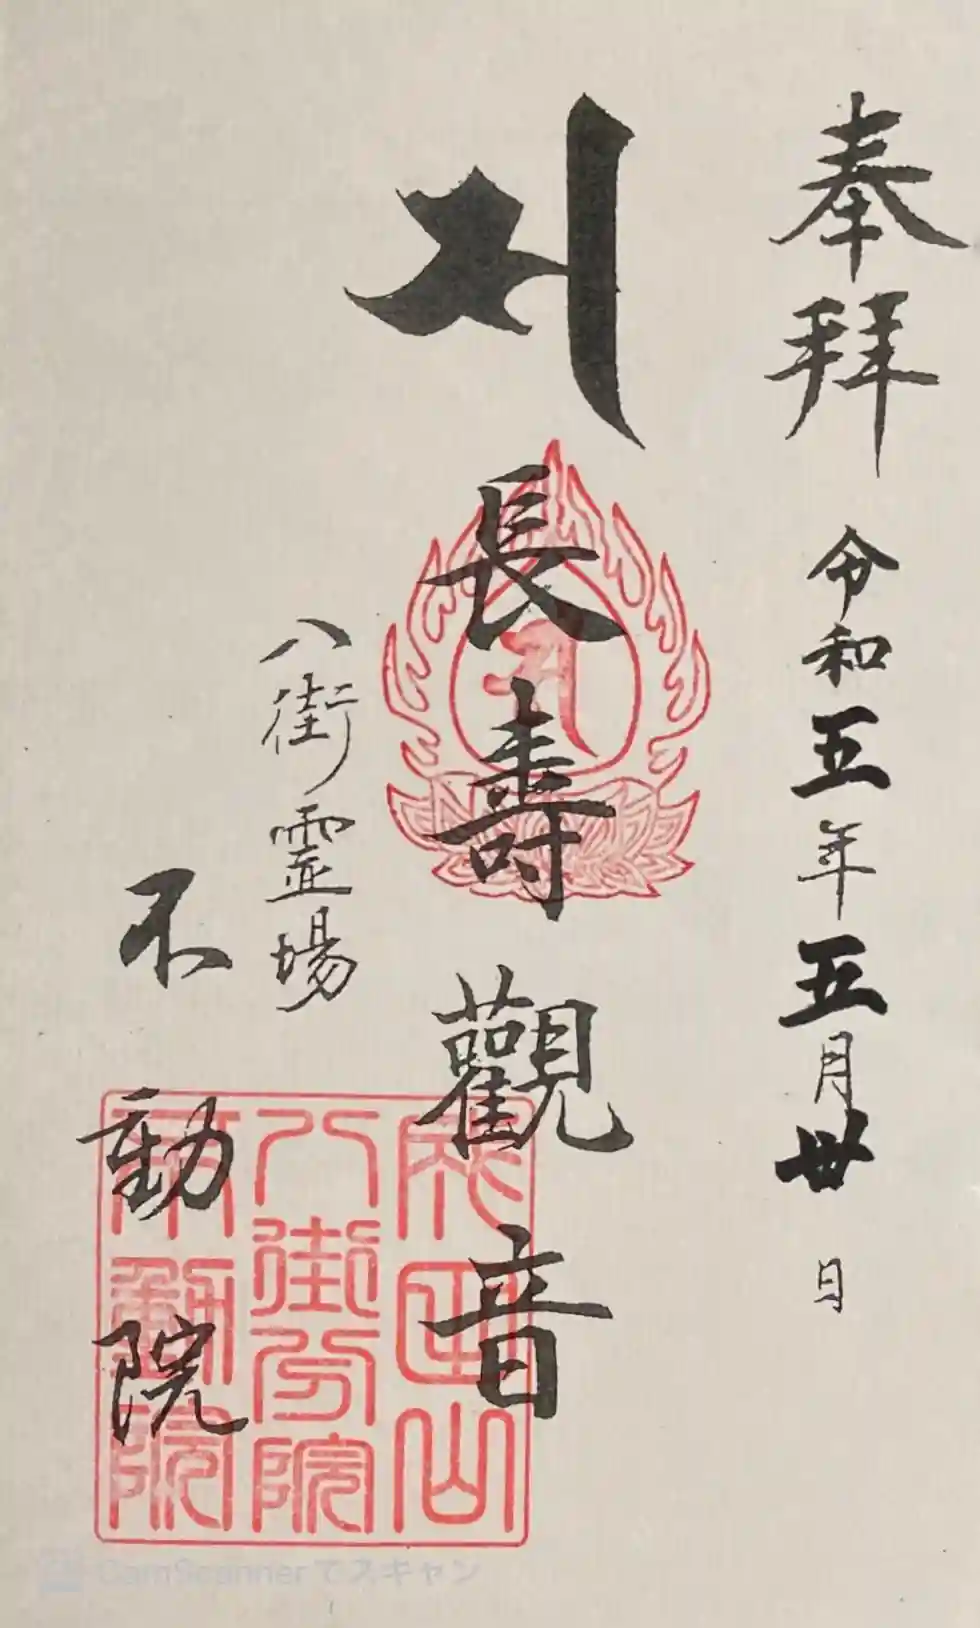 奉拝 令和五年五月卅日
長壽觀音
八街霊場
不動院
成田山
八街分院
不動院
CamScanner でスキャン